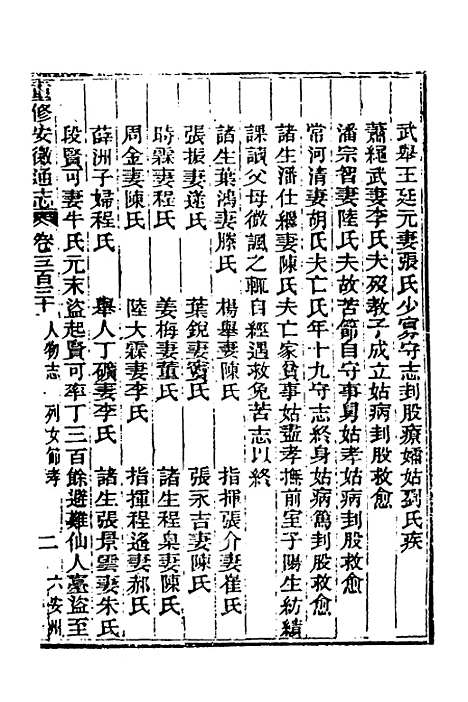 武舉王廷元妻張氏少寡守志刲股療孀姑劉氏疾
蕭繩武妻李氏夫歿教子成立姑病刲股救愈
潘宗智妻陸氏夫故苦節自守事舅姑孝姑病刲股救愈
常河清妻胡氏夫亡氏年十九守志終身姑病篤刲股救愈
諸生潘仕繼妻陳氏夫亡家貧事姑盡孝撫前室子陽生紡績
課讀父母微諷之輒自經遇救免苦志以終
諸生葉鴻妻滕氏 楊舉妻陳氏 指揮張介妻崔氏
張振妻達氏 葉銳妻竇氏 張永吉妻陳氏
時霖妻程氏 姜梅妻董氏 諸生程臬妻陳氏
周金妻陳氏 陸大霖妻李氏 指揮程遙妻郝氏
薛洲子婦程氏 舉人丁礦妻李氏 諸生張景雲妻朱氏
段賢可妻牛氏元末盜起賢可率丁三百餘避難仙人臺盜至
重修安徽通志 卷三百三十 人物志 列女節孝 二 六安州